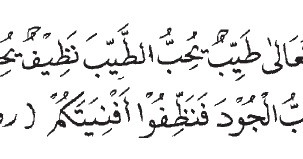 عَالىٰ طَيِّبٌ يُحِبُّ الطَّيِّبَ نَظِيْفٌ يُحِ
بُّ الْجُوْدَ فَنَظِّفُوْا أَفْنِيَتَكُمْ ( رو